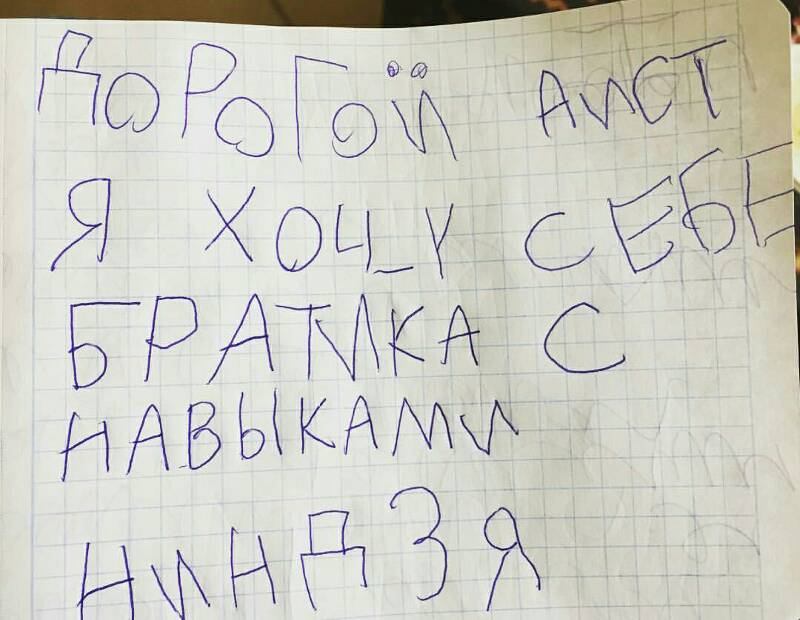 ДОРОГОЙ АИСТ
Я ХОЧУ СЕБЕ
БРАТИКА С
НАВЫКАМИ
НИНДЗЯ